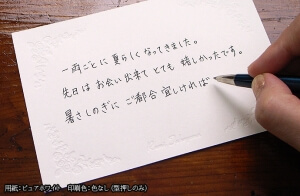 一雨ごとに夏らしくなってきました。
先日は お会い出来て とても 嬉しかったです。
暑さしのぎに ご都合 宜しければ
用紙:ピュアホワイト 印刷色:色なし(型押しのみ)